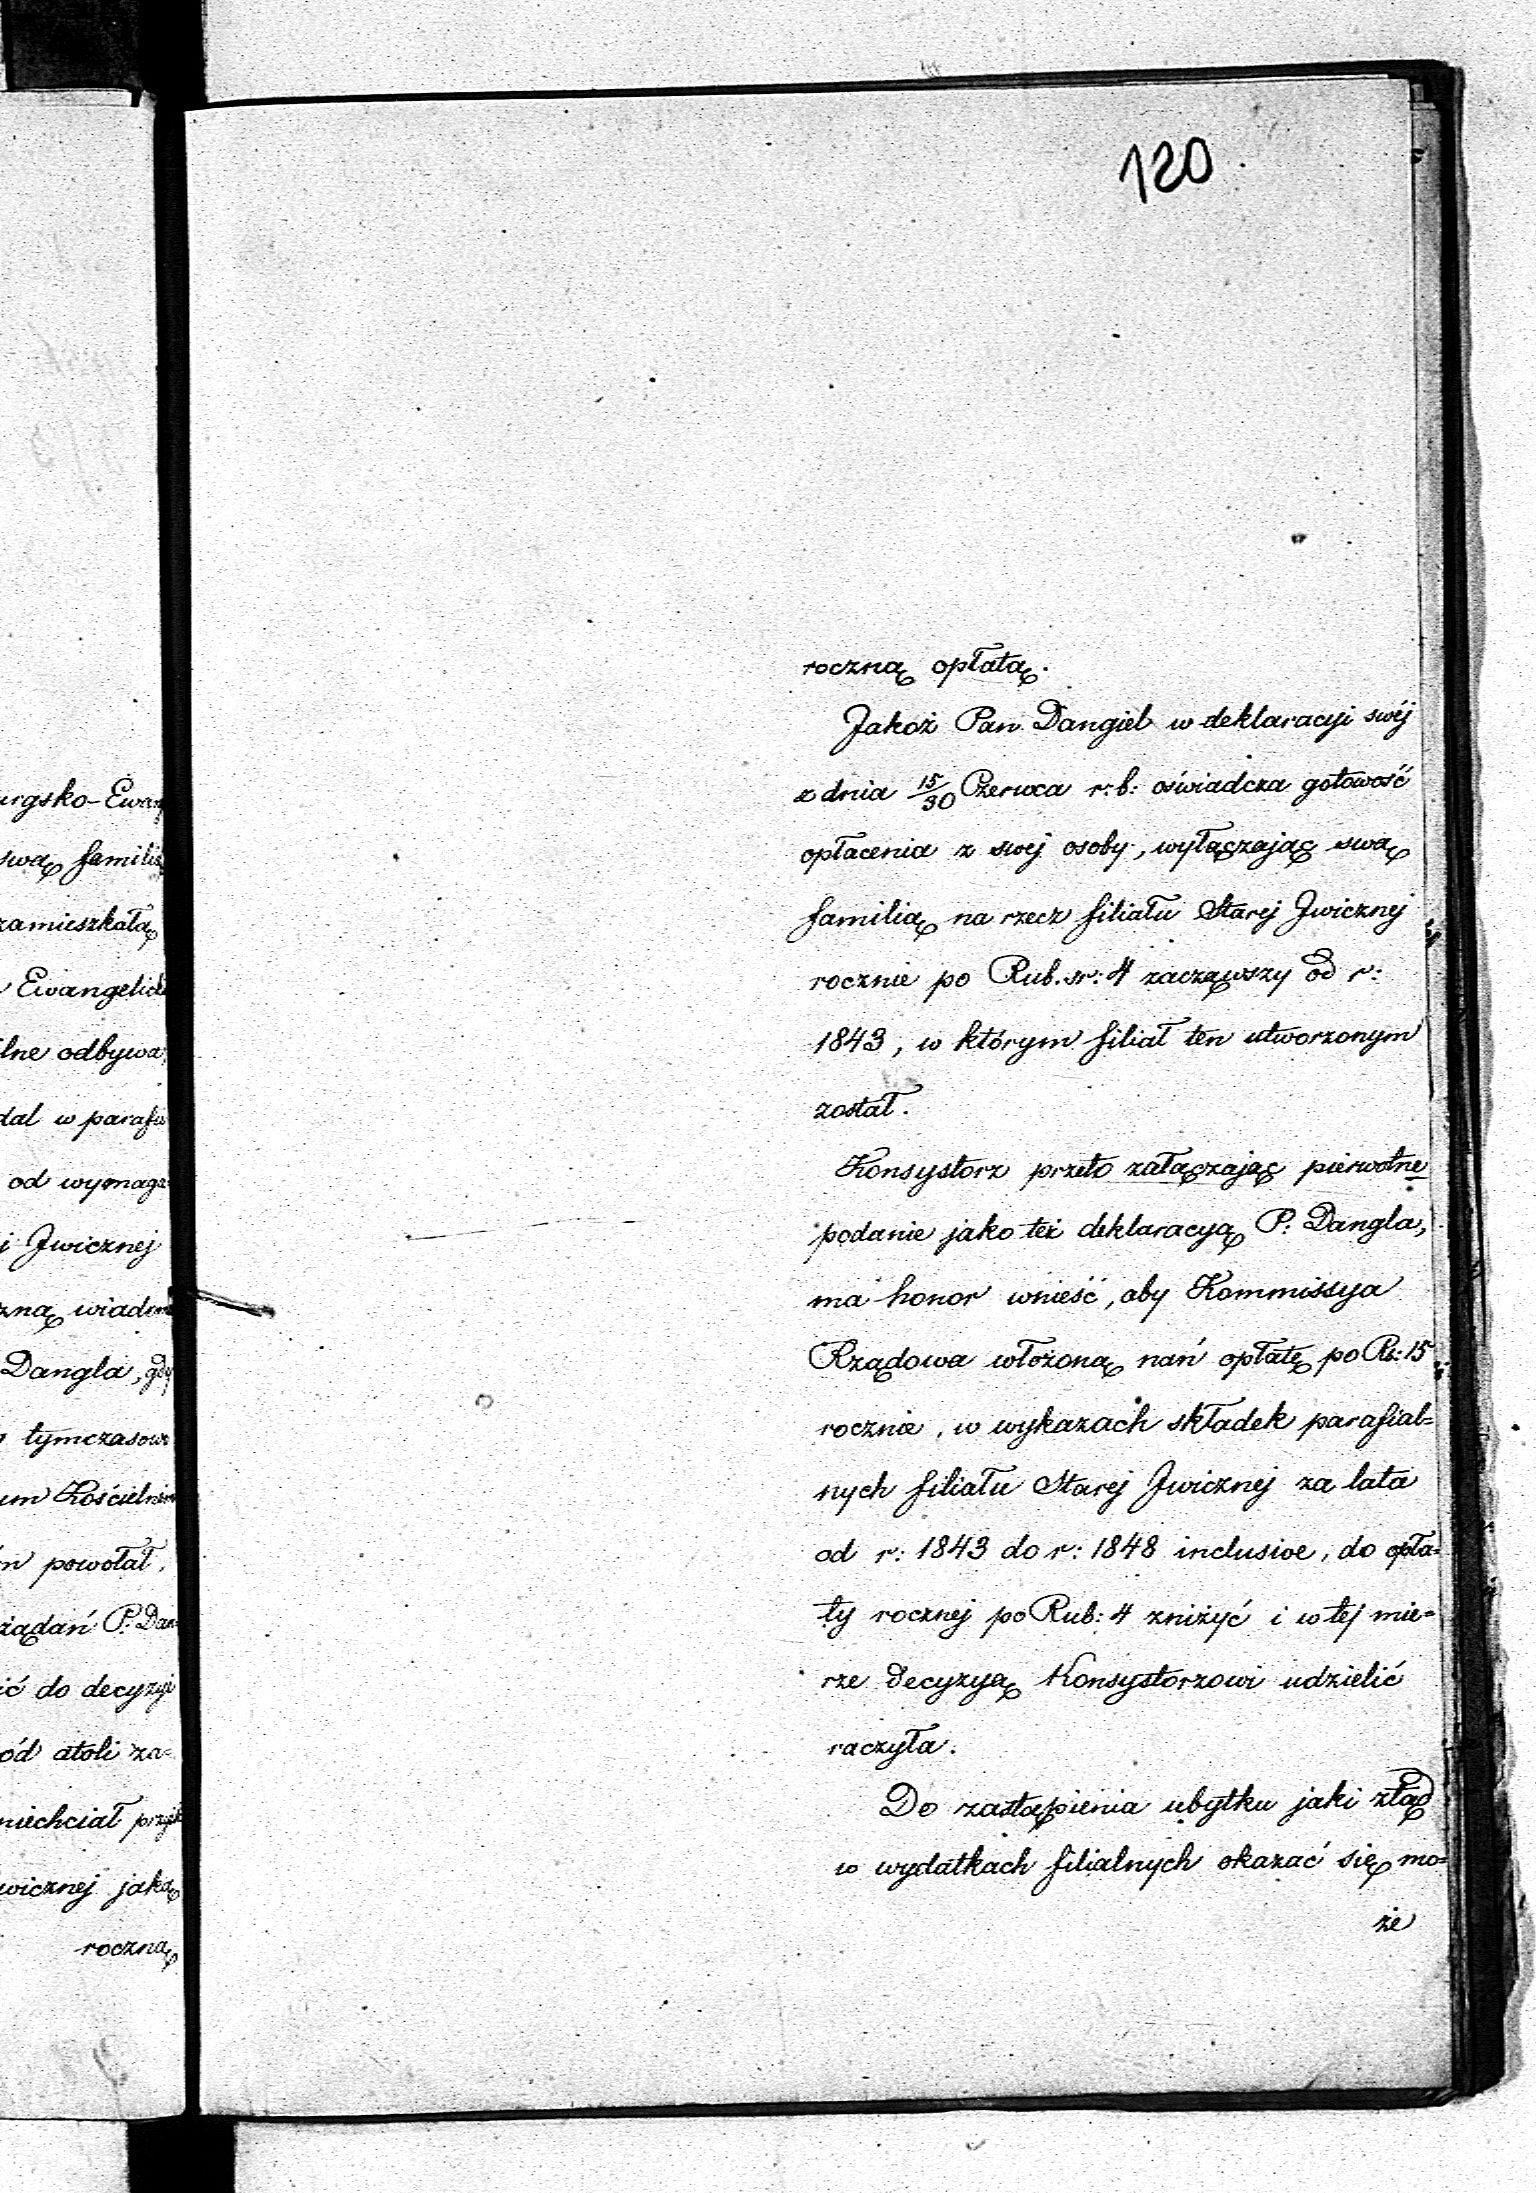 120
urgsko-Ewan
swą familią
zamieszkałą
Ewangelick
lne odbywa
dal w parafi
od wymaga
i Jwicznej
zną wiadom
Dangla, gdy
tymczasow
um Kościelnem
m powołał,
żądań P. Dan
ić do decyzyi
ód atoli za=
niechciał przyj
wicznej jaką
roczną
roczną opłatą.
Jakoż Pan Dangiel w deklaracyi swéj
z dnia 15/30 Czerwca r: b: oświadcza gotowość
opłacenia z swej osoby, wyłączając swą
familią na rzecz filiału Starej Jwicznej
rocznie po Rub. sr: 4 zacząwszy od r:
1843, w którym filiał ten utworzonym
został.
Konsystorz przeto załączając pierwotne
podanie jako też deklaracyą P: Dangla,
ma honor wnieść, aby Kommissya
Rządowa włożoną nań opłatę po Rb: 15
rocznie, w wykazach składek parafial=
nych filiału Starej Jwicznej za lata
od r: 1843 do r: 1848 inclusive, do opła=
ty rocznej po Rub: 4 zniżyć i w tej mie=
rze decyzyą Konsystorzowi udzielić
raczyła.
Do zastąpienia ubytku jaki ztąd
w wydatkach filialnych okazać się mo=
że